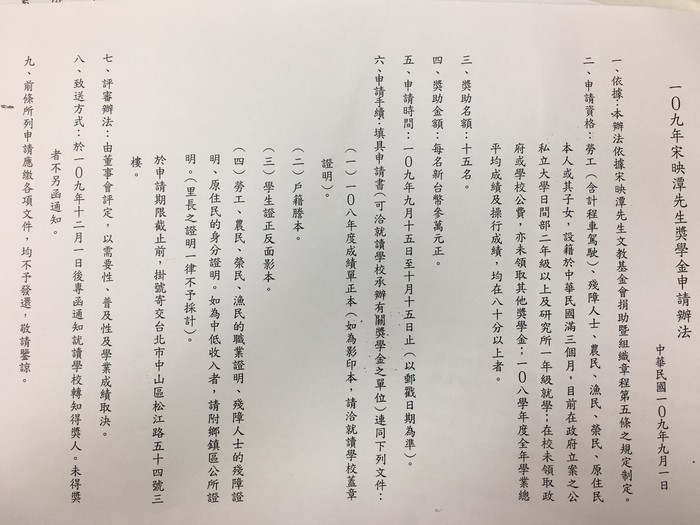 一０九年宋映潭先生獎學金申請辦法
中華民國一０九年九月一日
一、依據：本辦法依據宋映潭先生文教基金會捐助暨組織章程第五條之規定制定。
二、申請資格：勞工（含計程車駕駛）、殘障人士、農民、漁民、榮民、原住民
本人或其子女，設籍於中華民國滿三個月，目前在政府立案之公
私立大學日間部二年級以上及研究所一年級就學；在校未領取政
府或學校公費，亦未領取其他獎學金；一０八學年度全年學業總
平均成績及操行成績，均在八十分以上者。
三、獎助名額：十五名。
四、獎助金額：每名新台幣參萬元正。
五、申請時間：一０九年九月十五日至十月十五日止（以郵戳日期為準）。
六、申請手續：填具申請書（可洽就讀學校承辦有關獎學金之單位）連同下列文件：
（一）一０八年度成績單正本（如為影印本，請洽就讀學校蓋章
證明）。
（二）戶籍謄本。
（三）學生證正反面影本。
（四）勞工、農民、榮民、漁民的職業證明、殘障人士的殘障證
明、原住民的身分證明。如為中低收入者，請附鄉鎮區公所證
明。（里長之證明一律不予採計）。
於申請期限截止前，掛號寄交台北市中山區松江路五十四號三
樓。
七、評審辦法：由董事會評定，以需要性、普及性及學業成績取決。
八、致送方式：於一０九年十二月一日後專函通知就讀學校轉知得獎人。未得獎
者不另函通知。
九、前條所列申請應繳各項文件，均不予發還，敬請鑒諒。